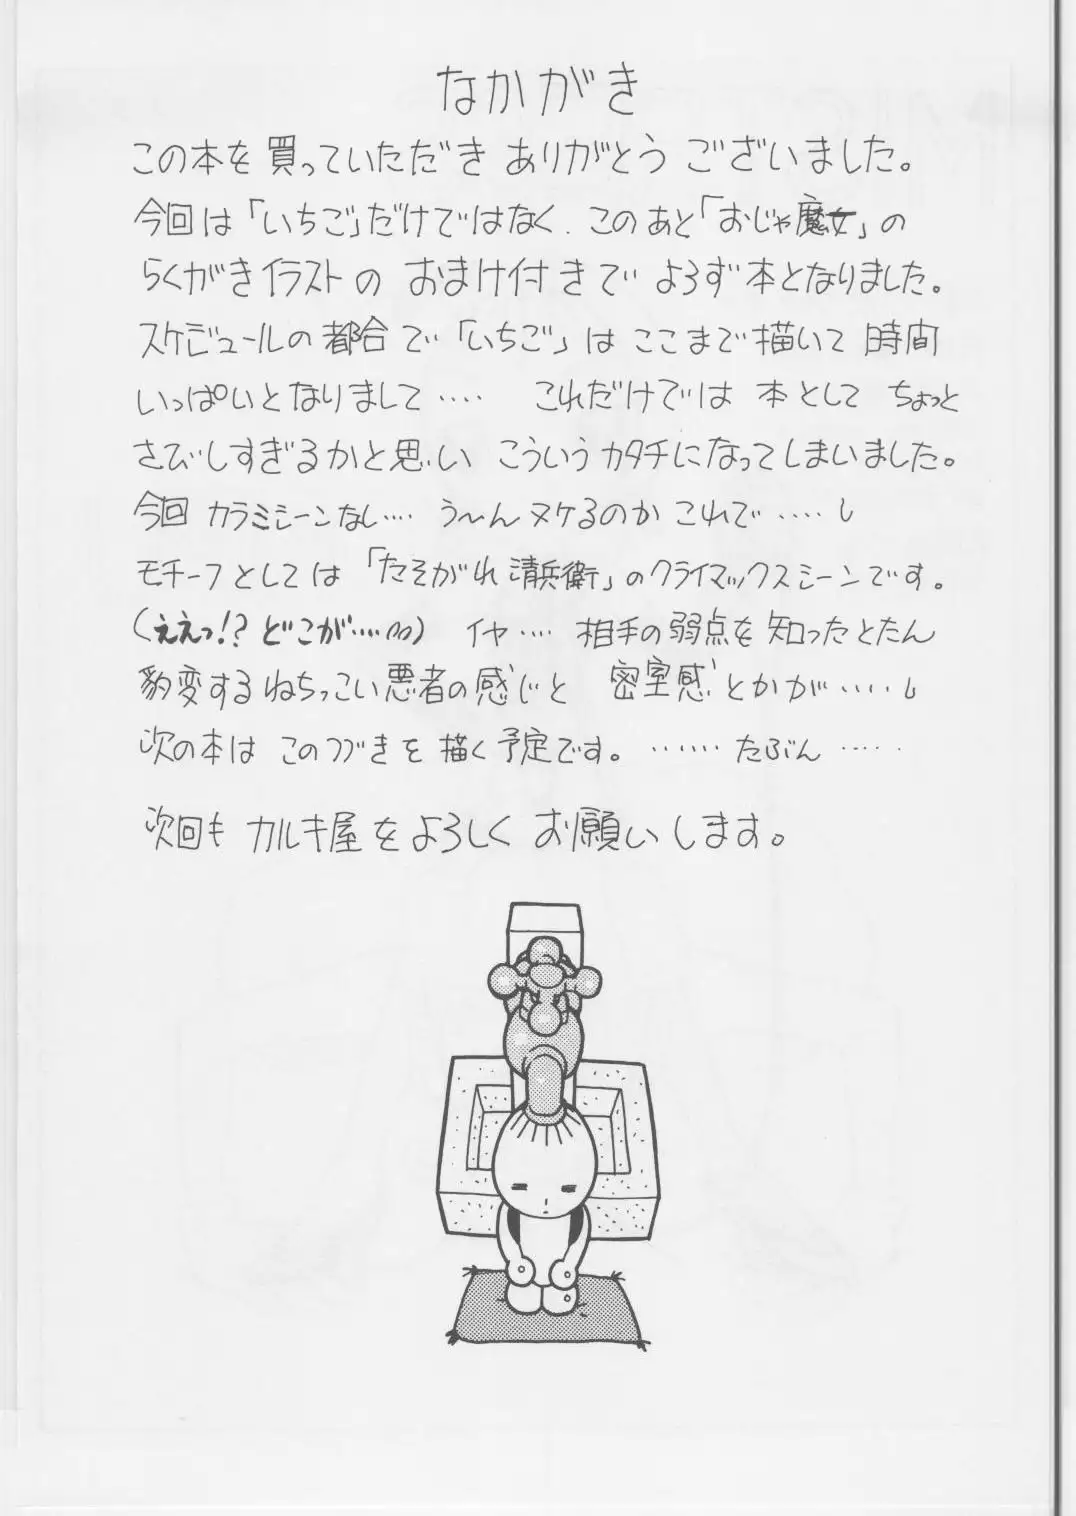 なかがき
この本を買っていただきありがとうございました。
今回は「いちご」だけではなく、このあと「おじゃ魔女」の
らくがきイラストの おまけ付きで よろず本となりました。
スケジュールの都合で「いちご」は ここまで描いて 時間
いっぱいとなりまして‥‥ これだけでは 本として ちょっと
さびしすぎるかと思い こういうカタチになってしまいました。
今回 カラミシーンなし‥‥ う〜ん ヌケるのか これで‥‥‥
モチーフとしては「たそがれ清兵衛」のクライマックスシーンです。
(ええっ!?どこが‥‥) イヤ‥‥ 相手の弱点を 知ったとたん
豹変する ねちっこい悪者の感じと 密室感とかが‥‥‥
次の本は このつづきを 描く予定です。‥‥‥たぶん‥‥‥
次回も カルキ屋を よろしく お願いします。